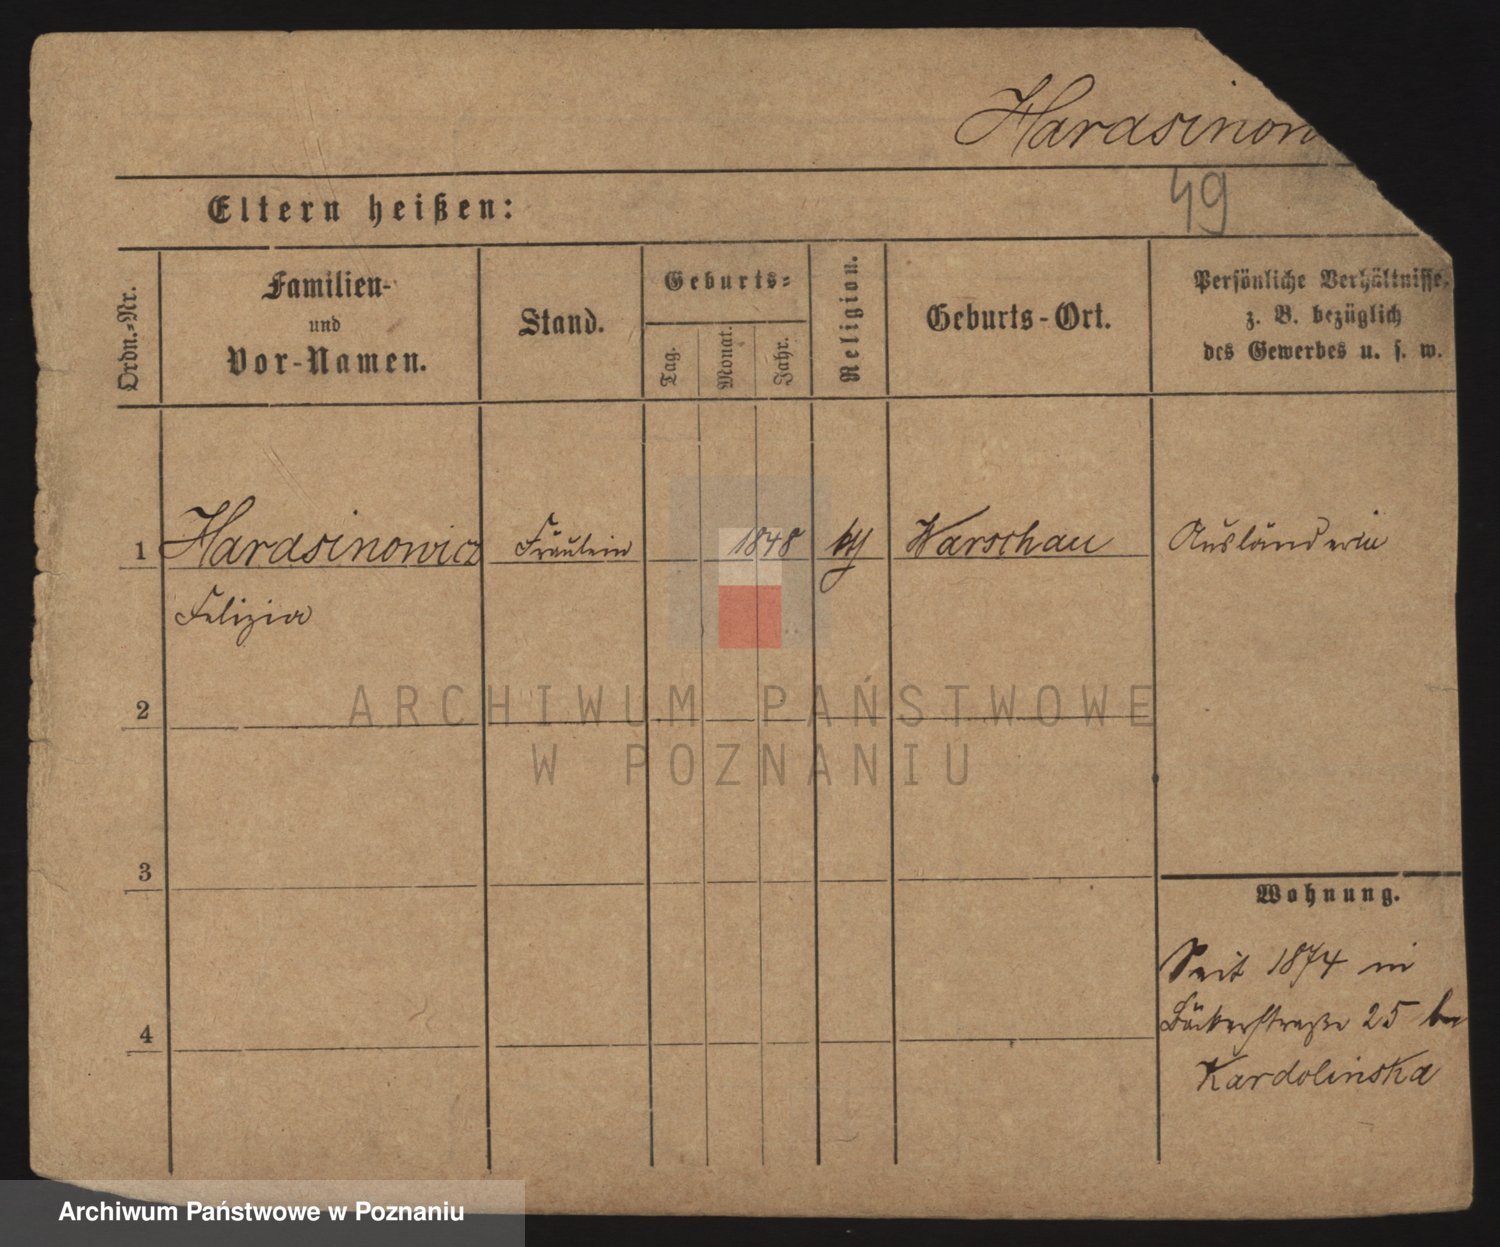 Harasinow
49
Eltern heißen:
Ordn.-Nr.
Familien-
und
Vor-Namen.
Stand.
Geburts-
Tag.
Monat.
Jahr.
Religion.
Geburts-Ort.
Persönliche Verhältnisse,
z. B. bezüglich
des Gewerbes u. s. w.
1 Harasinowicz Fräulein 1848 Warschau Ausländerin
Felizia
2
3
4
Wohnung.
Seit 1874 in
Bäckerstraße 25 bei
Kardolinska
ARCHIWUM PAŃSTWOWE
W POZNANIU
Archiwum Państwowe w Poznaniu